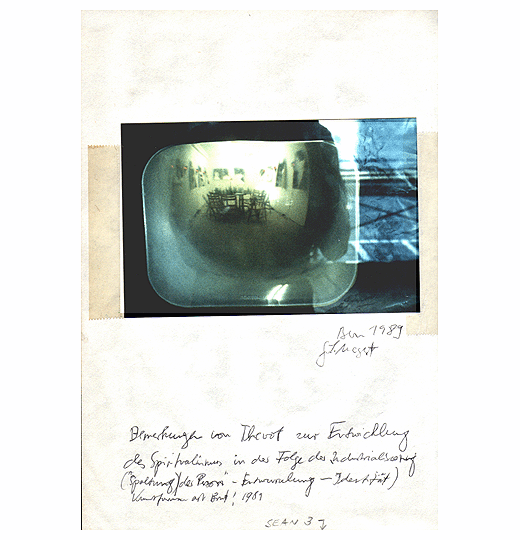 1989
Bemerkungen von Thevoz zur Entwicklung
des Spiritualismus in der Folge der Industrialisierung
("Spaltung" der Person - Entwurzelung - Identität)
Kunstforum art Brut! 1989
SEAN 3